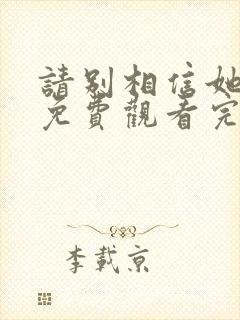 請別相信她
免費觀看完
李載京